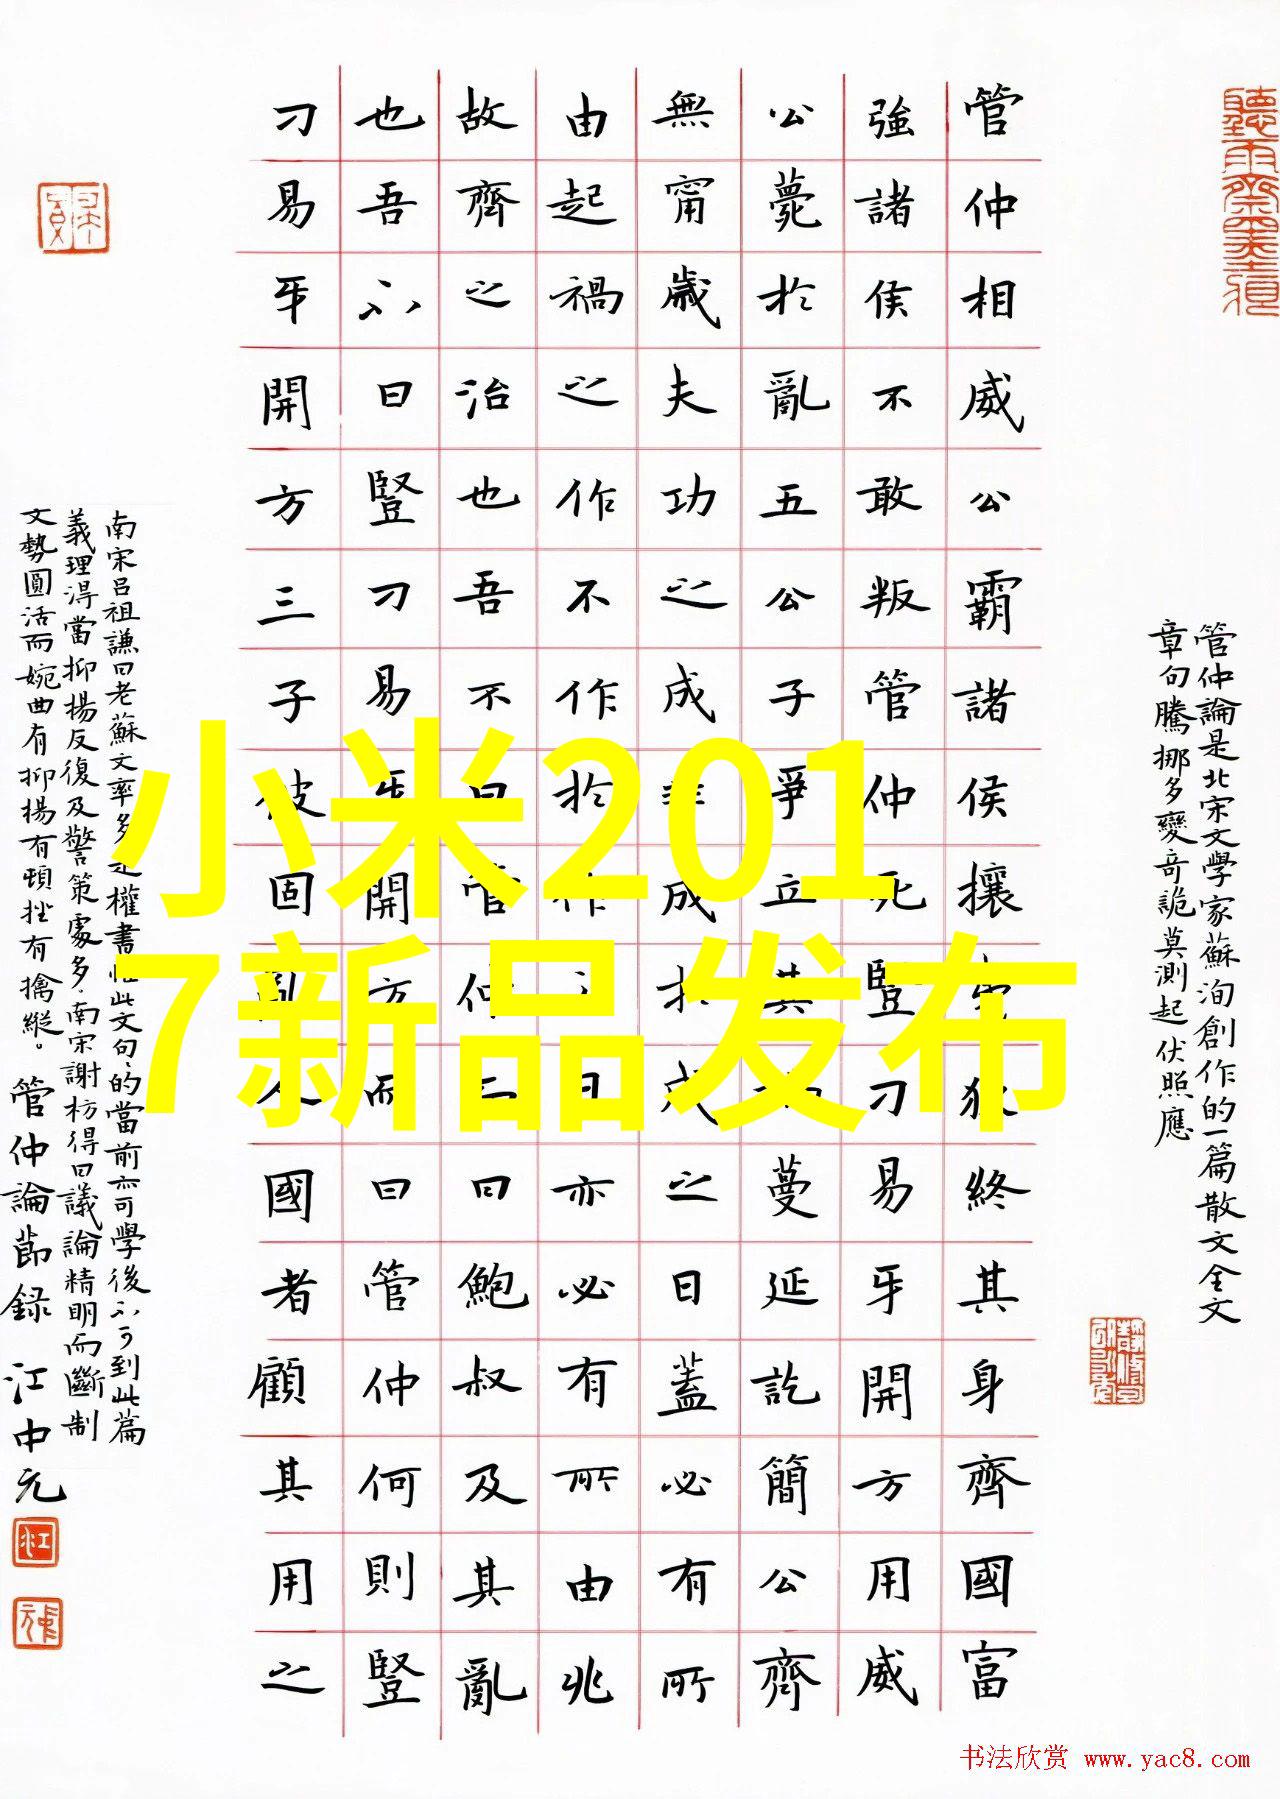 管仲論是北宋文學家蘇洵創作的一篇散文全文
章句騰挪多變奇詭莫測起伏照應
管仲相威公霸諸侯攘夷狄終其身齊國富
強諸侯不敢叛管仲死豎刁易牙開方用威
公薨於亂五公子爭立其禍蔓延訖簡公齊
無甯歲夫功之成非成於成之日蓋必有所
由起禍之作不作於作之日亦必有所由兆
故齊之治也吾不曰管仲而曰鮑叔及其亂
也吾不曰豎刁易牙開方而曰管仲何則豎
刁易牙開方三子彼固亂人國者顧其用之
南宋呂祖謙曰老蘇文率多是權書惟此文句句的當前亦可學後不可到此篇
義理淂當抑揚反復及警策處多南宋謝枋得曰議論精明而斷制
文勢圓活而婉曲有抑揚有頓挫有擒縱。管仲論節録 江中元
小米201
7新品发布
书法欣赏 www.yac8.com